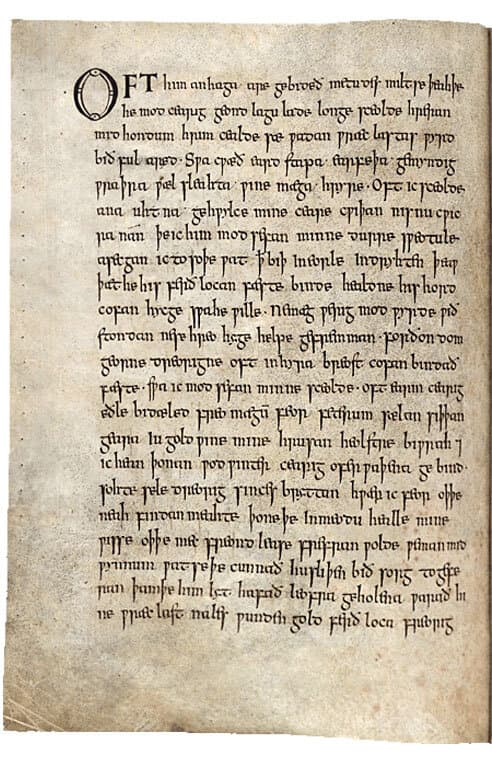 OFT him anhaga are gebideð metudes miltse þeah þe
he mod cearig geond lagu lade longe sceolde hreran
mid hondum hrim cealde sæ ƿadan ƿræc lastas ƿyrd
bið ful aræd · Sƿa cƿæð eard stapa · earfeþa · gemyndig
ƿraþra ƿæl sleahta · ƿine mæga · hryre · Oft ic sceolde
ana uhtna gehƿylce mine ceare cƿiþan nis nu cƿic
ra nan þe ic him mod sefan minne durre sƿeotule
asecgan ic to soþe ƿat ꝥ biþ in eorle indryhten þeaƿ
þæt he his ferð locan fæste binde healdne his hord
cofan hycge sƿa he ƿille · Ne mæg ƿerig mod ƿyrde ƿið
stondan ne se hreo hyge helpe gefremman · forðon dom
georne dreorigne oft in hyra breost cofan bindað
fæste · sƿa ic mod sefan minne sceolde · oft earm cearig
eðle bidæled freo magū feor feterum sælan siþþan
geara iu gold ƿine mine hrusan heolstre biƿrah ⁊
ic hean þonan ƿod ƿinter cearig ofer ƿaþena ge bind ·
sohte sele dreorig sinces bryttan hƿær ic feor oþþe
neah findan meahte þone þe in meodu healle mine
ƿisse oþþe mec freond lease frefran ƿolde ƿeman mid
ƿynnum ƿat se þe cunnað hu sliþen bið sorg to gefe
ran þam þe him lyt hafað leofra geholena ƿarað hi
ne ƿræc last nales ƿunden gold ferð loca freorig